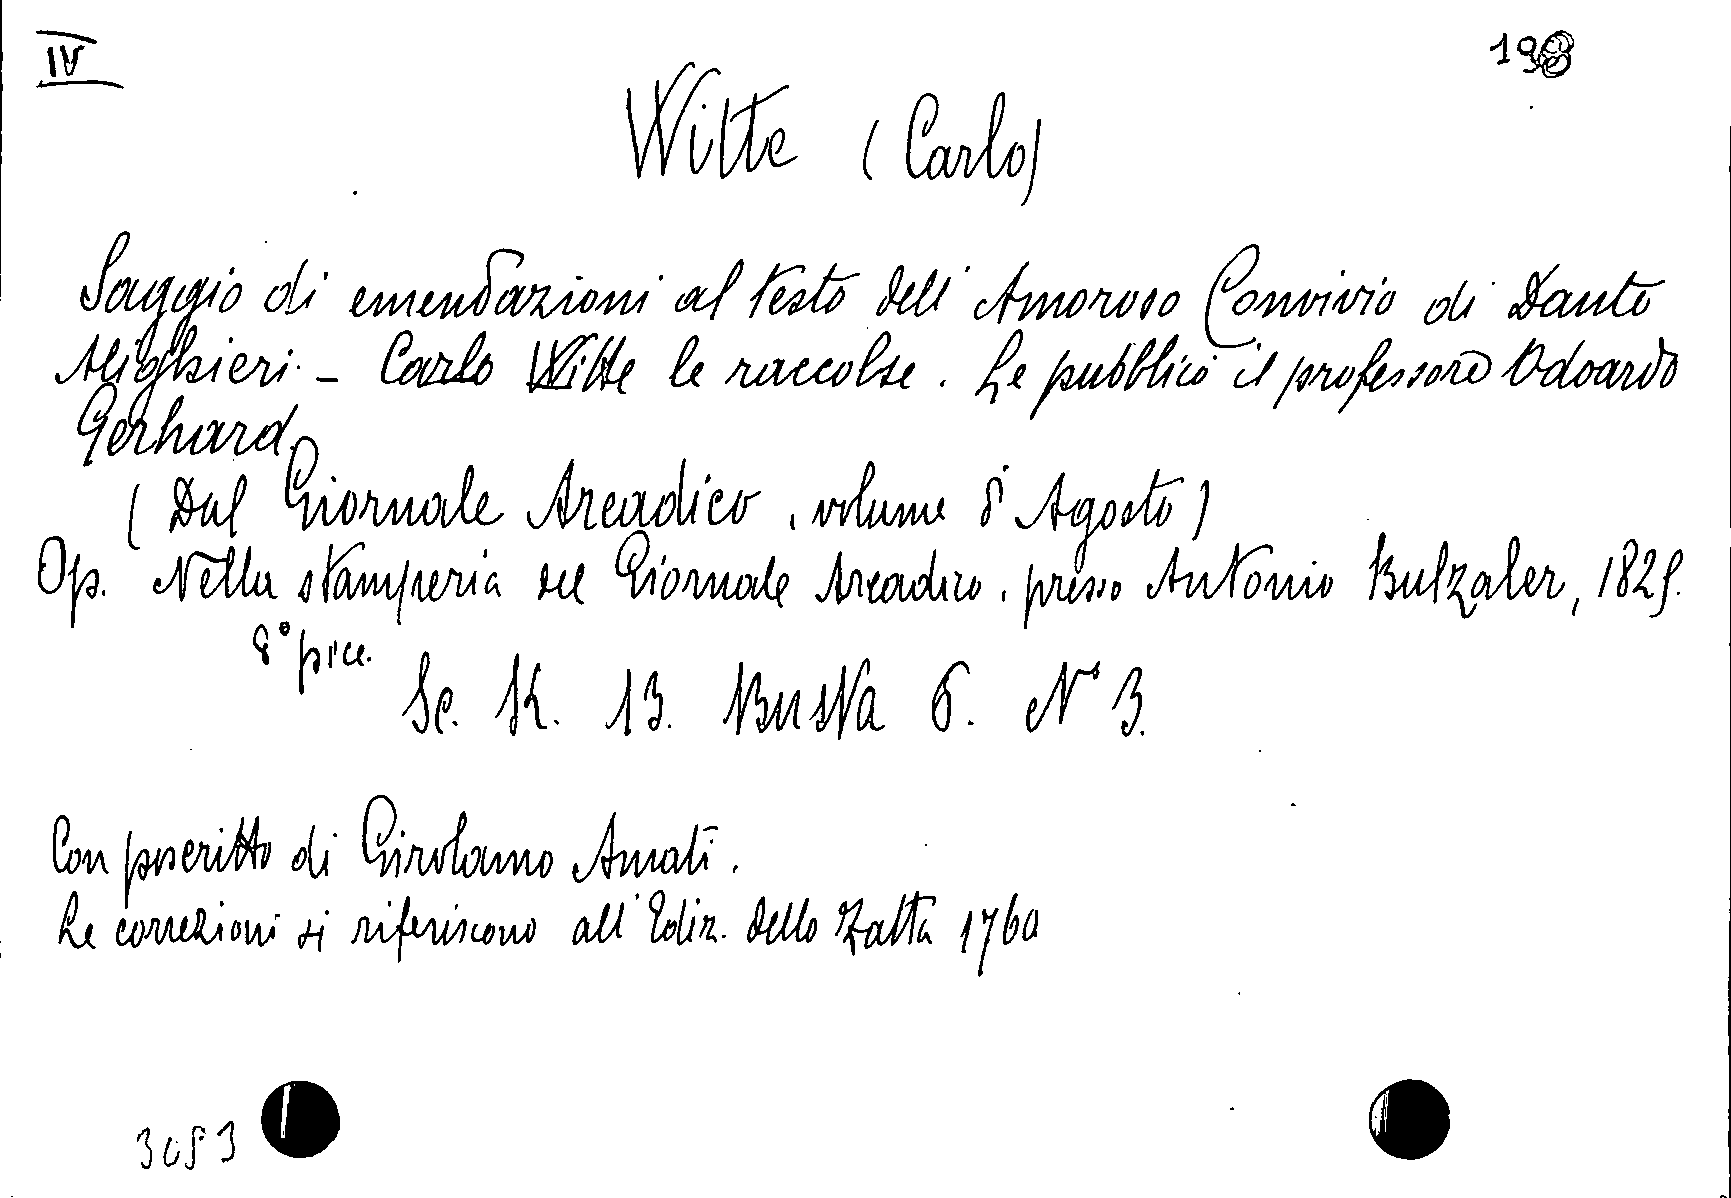 IV
198
Witte (Carlo)
Saggio di emendazioni al testo dell'Amoroso Convivio di Dante
Alighieri. - Carlo Witte le raccolse. Le pubblicò il professore Odoardo
Gerhard.
(Dal Giornale Arcadico, volume d'Agosto)
Op. Nella stamperia del Giornale Arcadico, presso Antonio Bulzaler, 1825.
8° picc.
Sc. K. 13. Busta 6. N° 3.
Con poscritto di Girolamo Amati.
Le correzioni si riferiscono all'Ediz. dello Zatta 1760